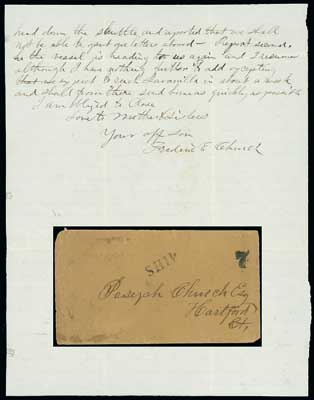 head down the shuttle and reported that we shall
not be able to put our letters aboard — Prepart second.
So the vessel is heading to us again and I resume
although I have nothing further to add excepting
that we expect to reach Savanilla in about a week
and shall from there send home as quickly as possible
I am obliged to Close
Love to Mother & Sisters
Your aff son
Frederic E Church
SHIP
7
Joseph Church Esq
Hartford
Ct,